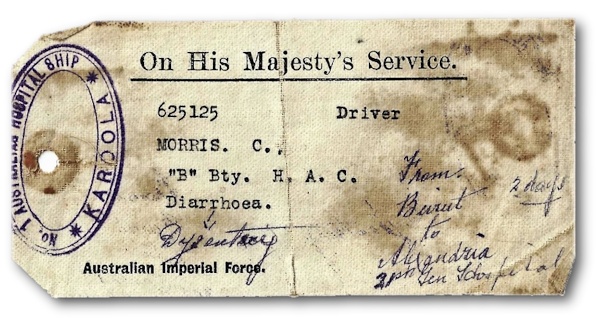 On His Majesty's Service.
No. 1 AUSTRALIAN HOSPITAL SHIP
* KAROOLA *
625125 Driver
MORRIS. C.,
"B" Bty. H. A. C.
Diarrhoea.
Dysentery
From
Beirut 2 days
to
Alexandria
21st Gen Hospital
Australian Imperial Force.